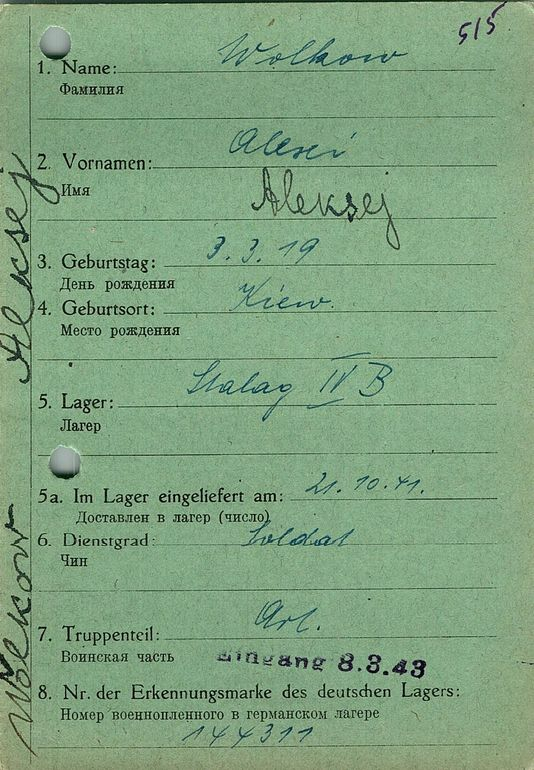 515
1. Name: Wolkow
Фамилия
2. Vornamen: Alexei
Имя Aleksej
3. Geburtstag: 3.3.19
День рождения
4. Geburtsort: Kiew.
Место рождения
5. Lager: Stalag IV B
Лагер
5a. Im Lager eingeliefert am: 21.10.41.
Доставлен в лагер (число)
6. Dienstgrad: Soldat
Чин
7. Truppenteil: Art.
Воинская часть Eingang 8.3.43
8. Nr. der Erkennungsmarke des deutschen Lagers:
Номер военнопленного в германском лагере
144311
Wolkow Aleksej